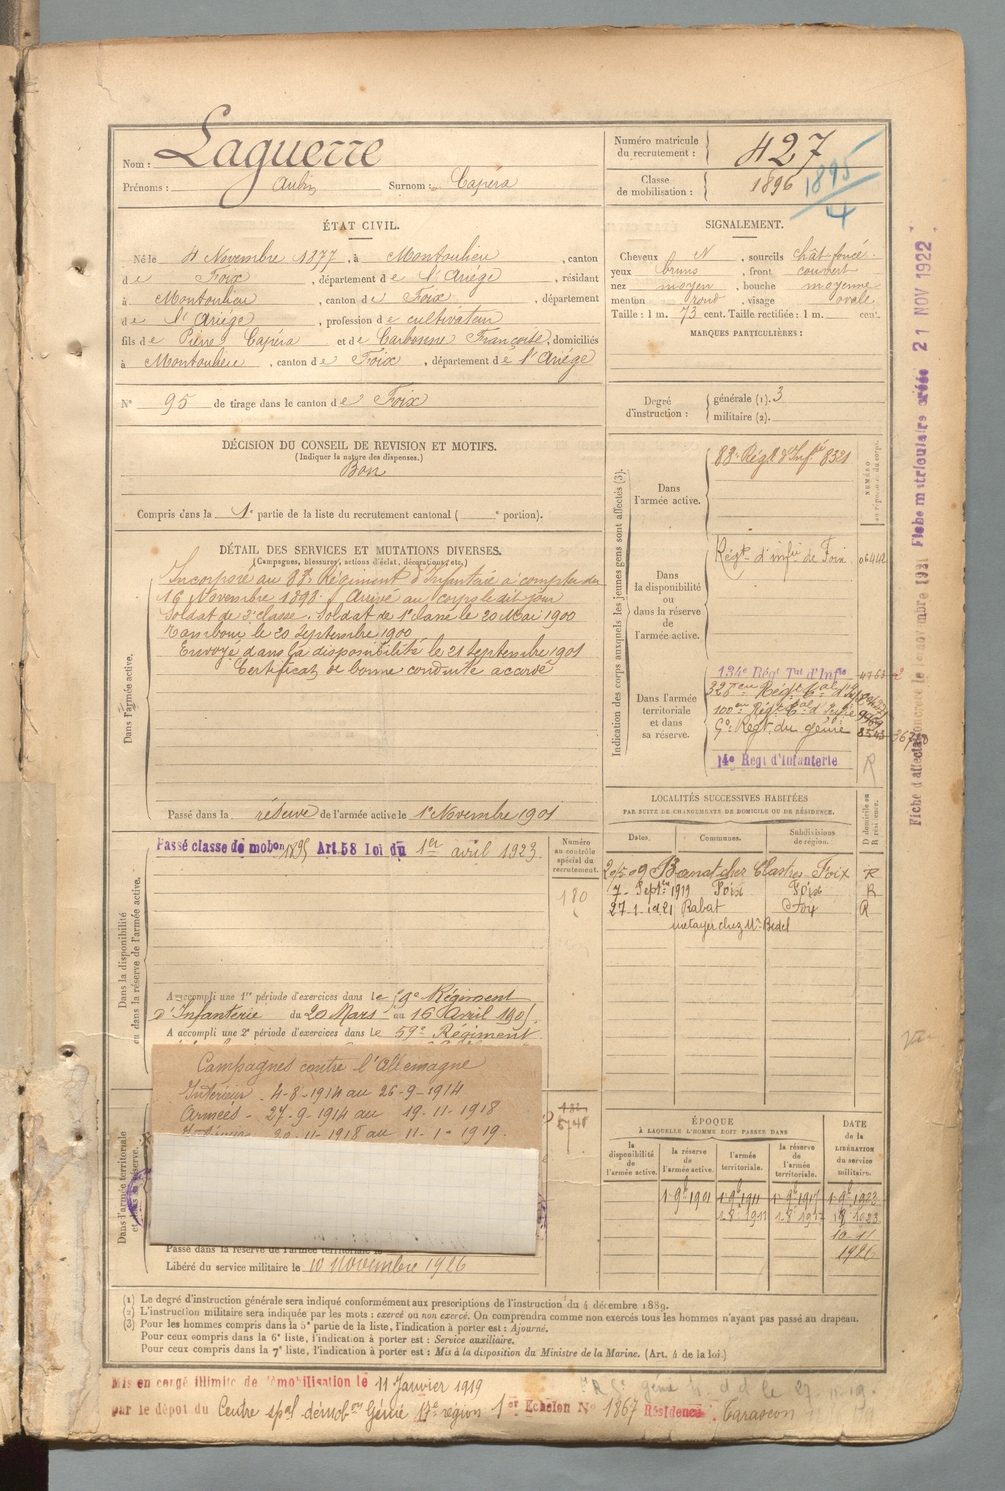 Nom : Laguerre
Prénoms : Aubin Surnom : Capéra
Numéro matricule du recrutement : 427
Classe de mobilisation : 1896 1895/4
ÉTAT CIVIL.
Né le 4 Novembre 1877, à Montoulieu, canton
de Foix, département de l'Ariège, résidant
à Montoulieu, canton de Foix, département
de l'Ariège, profession de cultivateur
fils de Pierre Capéra et de Carbonne Françoise, domiciliés
à Montoulieu, canton de Foix, département de l'Ariège
N° 95 de tirage dans le canton de Foix
SIGNALEMENT.
Cheveux N, sourcils chât-foncé
yeux bruns, front couvert
nez moyen, bouche moyenne
menton rond, visage ovale
Taille : 1 m. 73 cent. Taille rectifiée : 1 m. cent.
MARQUES PARTICULIÈRES :
Degré d'instruction : générale (1). 3
militaire (2).
DÉCISION DU CONSEIL DE REVISION ET MOTIFS.
(Indiquer la nature des dispenses.)
Bon
Compris dans la 1e partie de la liste du recrutement cantonal ( e portion).
DÉTAIL DES SERVICES ET MUTATIONS DIVERSES.
(Campagnes, blessures, actions d'éclat, décorations, etc.)
Dans l'armée active.
Incorporé au 83e Régiment d'Infanterie à compter du
16 Novembre 1898. Arrivé au corps le dit jour
Soldat de 2e classe. Soldat de 1e classe le 20 Mai 1900
Tambour le 20 Septembre 1900
Envoyé dans la disponibilité le 21 Septembre 1901
Certificat de bonne conduite accordé
Passé dans la réserve de l'armée active le 1er Novembre 1901
Indication des corps auxquels les jeunes gens sont affectés (3).
NUMÉRO au répertoire du corps.
Dans l'armée active.
83e Régt d'Infie 8321
Dans la disponibilité ou dans la réserve de l'armée active.
Régt d'infie de Foix
Dans l'armée territoriale et dans sa réserve.
134e Régt Tal d'Infie
14e Regt d'Infanterie R
Fiche matriculaire créée 21 NOV 1922
Dans la disponibilité ou dans la réserve de l'armée active.
Passé classe de mobon 1895 Art 58 Loi du 1er avril 1923
Numéro au contrôle spécial du recrutement.
180
A accompli une 1re période d'exercices dans le 59e Régiment
d'Infanterie du 20 Mars au 16 Avril 1905
A accompli une 2e période d'exercices dans le 59e Régiment
Campagnes contre l'Allemagne
Intérieur - 4-8-1914 au 26-9-1914
Armées - 27-9-1914 au 19-11-1918
Intérieur 20-11-1918 au 11-1-1919.
Dans l'armée territoriale et dans sa réserve.
Passé dans la réserve de l'armée territoriale le
Libéré du service militaire le 10 Novembre 1926
LOCALITÉS SUCCESSIVES HABITÉES
PAR SUITE DE CHANGEMENTS DE DOMICILE OU DE RÉSIDENCE.
Dates. Communes. Subdivisions de région. D domicile ou R résidence.
Banat chez Clastres Foix R
7 Septbre 1919 Foix Foix R
27-1-1921 Rabat Foix R
métayer chez Mr Bedel
ÉPOQUE
À LAQUELLE L'HOMME DOIT PASSER DANS
la disponibilité de l'armée active. la réserve de l'armée active. l'armée territoriale. la réserve de l'armée territoriale. DATE de la LIBÉRATION du service militaire.
1-9b 1901 1-9b 1911 1-9b 1917 1-9b 1923
10-11
1926
(1) Le degré d'instruction générale sera indiqué conformément aux prescriptions de l'instruction du 4 décembre 1889.
(2) L'instruction militaire sera indiquée par les mots : exercé ou non exercé. On comprendra comme non exercés tous les hommes n'ayant pas passé au drapeau.
(3) Pour les hommes compris dans la 5e partie de la liste, l'indication à porter est : Ajourné.
Pour ceux compris dans la 6e liste, l'indication à porter est : Service auxiliaire.
Pour ceux compris dans la 7e liste, l'indication à porter est : Mis à la disposition du Ministre de la Marine. (Art. 4 de la loi.)
Mis en congé illimité de démobilisation le 11 Janvier 1919
par le dépot du Centre spal démobon Génie 17e région 1er Echelon N° 1867 Résidence Tarascon